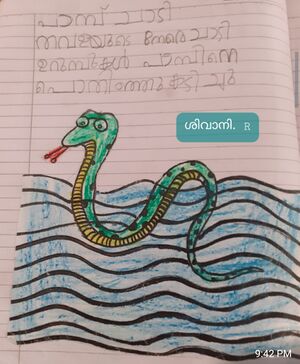 പാമ്പ് ചാടി
തവളയുടെ നേരെ ചാടി
ഉറുമ്പുകൾ പാമ്പിനെ
പൊതിഞ്ഞു കടിച്ചു
ശിവാനി. R
9:42 PM